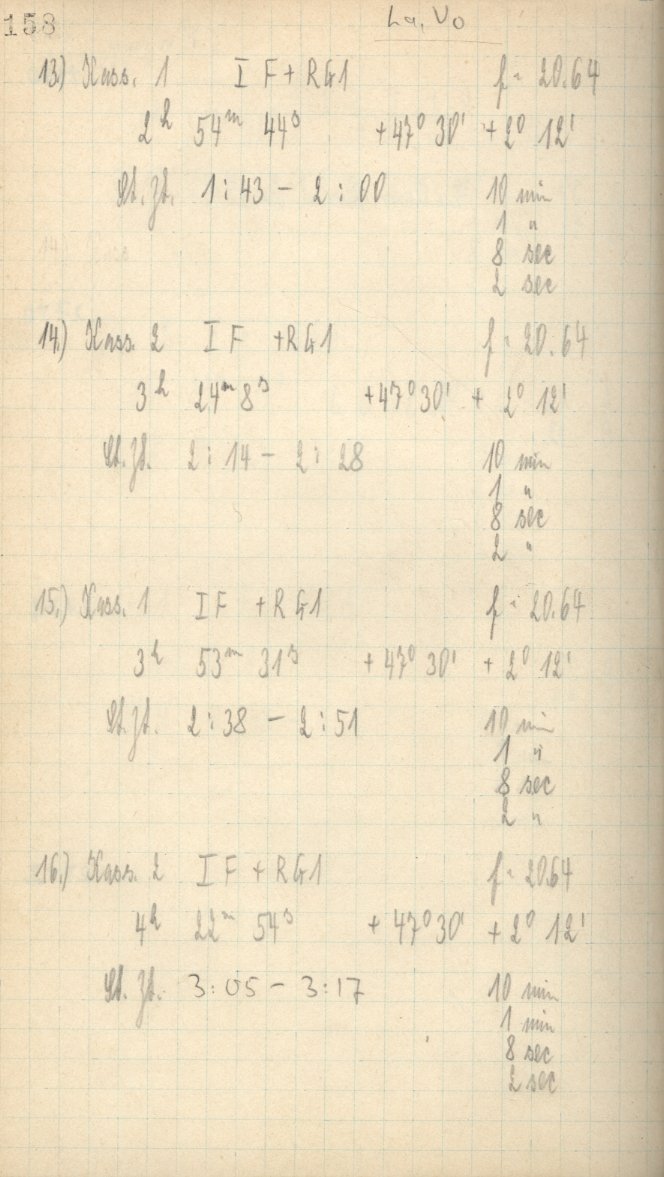 158
La, Vo
13.) Kass. 1 I F + RG1 f = 20.64
2h 54m 44s +47° 30' +2° 12'
St. Zt. 1:43 - 2:00 10 min
1 "
8 sec
2 sec
14.) Kass. 2 I F + RG1 f = 20.64
3h 24m 8s +47° 30' + 2° 12'
St. Zt. 2:14 - 2:28 10 min
1 "
8 sec
2 "
15.) Kass. 1 I F + RG1 f = 20.64
3h 53m 31s +47° 30' + 2° 12'
St. Zt. 2:38 - 2:51 10 min
1 "
8 sec
2 "
16.) Kass. 2 I F + RG1 f = 20.64
4h 22m 54s +47° 30' + 2° 12'
St. Zt. 3:05 - 3:17 10 min
1 min
8 sec
2 sec